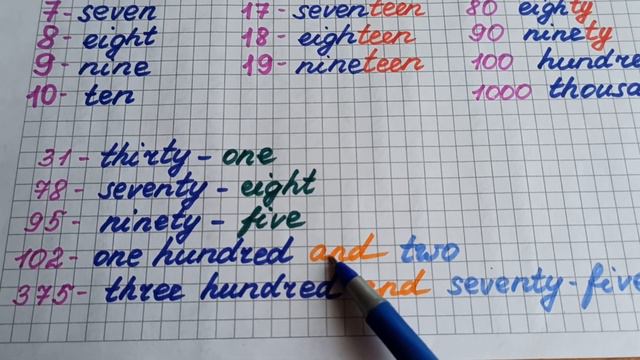 7- seven 17- seventeen 80 eighty
8- eight 18- eighteen 90 ninety
9- nine 19- nineteen 100
10- ten 1000
31- thirty - one
78- seventy - eight
95- ninety - five
102- one hundred and two
375- three hundred and seventy-five